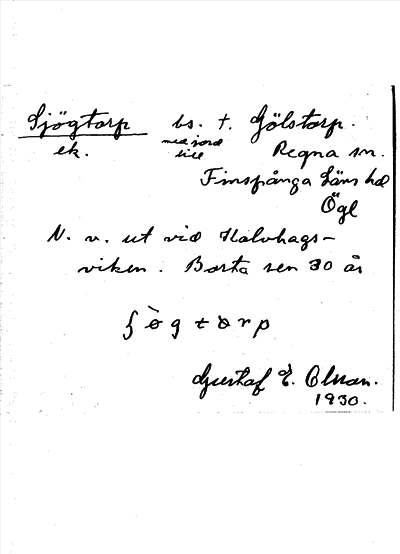 Sjögtorp bs. t. Gölstorp.
ek. med jord till Regna sn.
Finspånga läns hd
Ögl
N. v. ut vid Kalvhags-
viken. Borta sen 30 år
Gustaf E. Olsson.
1930.